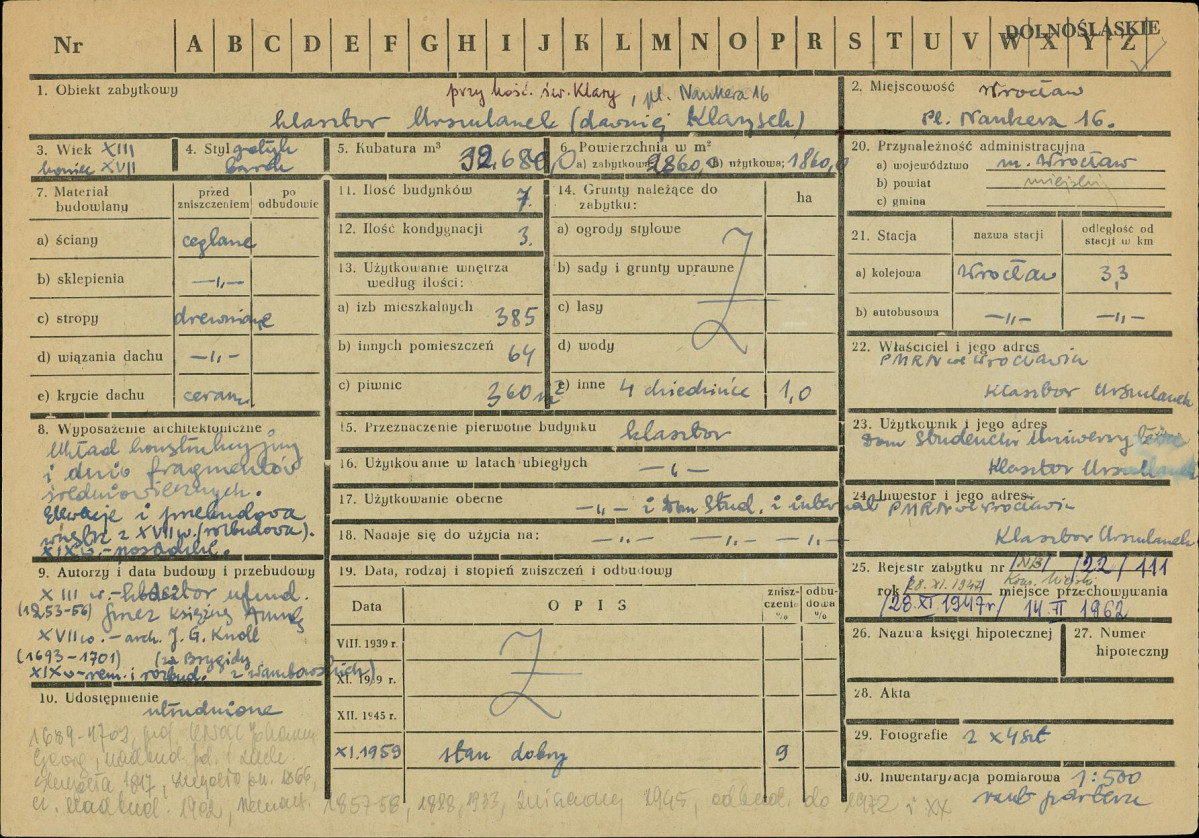 Nr A B C D E F G H I J K L M N O P R S T U V W X Y Z
DOLNOŚLĄSKIE
1. Obiekt zabytkowy
przy kość. św. Klary, pl. Nankera 16
klasztor Urszulanek (dawniej Klarysek)
2. Miejscowość Wrocław
Pl. Nankera 16.
3. Wiek XIII
koniec XVII
4. Styl gotyk
barok
5. Kubatura m³
6. Powierzchnia w m²
a) zabytkowa; 2860,0 b) użytkowa; 1860,0
20. Przynależność administracyjna
a) województwo m. Wrocław
b) powiat miejski
c) gmina
7. Materiał budowlany
przed zniszczeniem
po odbudowie
a) ściany ceglane
b) sklepienia —„—
c) stropy drewniane
d) wiązania dachu —„—
e) krycie dachu ceram
11. Ilość budynków 7.
12. Ilość kondygnacji 3.
13. Użytkowanie wnętrza
według ilości:
a) izb mieszkalnych 385
b) innych pomieszczeń 64
c) piwnic 360 m²
14. Grunty należące do
zabytku:
ha
a) ogrody stylowe
b) sady i grunty uprawne
c) lasy
d) wody
e) inne 4 dziedzińce 1,0
21. Stacja
nazwa stacji
odległość od
stacji w km
a) kolejowa Wrocław 3,3
b) autobusowa —„— —„—
22. Właściciel i jego adres
PMRN we Wrocławiu
Klasztor Urszulanek
8. Wyposażenie architektoniczne
Układ konstrukcyjny
i dużo fragmentów
średniowiecznych.
Elewacje i przebudowa
wnętrz z XVII w. (rozbudowa).
XIX w. –
15. Przeznaczenie pierwotne budynku klasztor
16. Użytkowanie w latach ubiegłych —„—
17. Użytkowanie obecne —„— i Dom Stud. i internat
18. Nadaje się do użycia na: —„— —„— —„—
23. Użytkownik i jego adres
Dom Studencki Uniwersytetu
Klasztor Urszulanek
24. Inwestor i jego adres
PMRN we Wrocławiu
Klasztor Urszulanek
9. Autorzy i data budowy i przebudowy
XIII w. – klasztor ufund.
(1253-56) przez księżnę Annę
XVII w. – arch. J. G. Knoll
(1693-1701) (za Brygidy
XIX w – rem. i rozbud. z Wambowskich)
19. Data, rodzaj i stopień zniszczeń i odbudowy
Data
OPIS
zniszczenia %
odbudowa %
VIII. 1939 r.
XI. 1939 r.
XII. 1945 r.
XI. 1959 stan dobry 9
25. Rejestr zabytku nr /N/3/ /22/ 111
rok /28. XI. 1947/ Kons. Miejski miejsce przechowywania
/28. XI 1947r/ 14. II 1962
26. Nazwa księgi hipotecznej
27. Numer
hipoteczny
28. Akta
29. Fotografie 2 x 4 szt
30. Inwentaryzacja pomiarowa 1:500
rzut parteru
10. Udostępnienie
utrudnione
1689-1703, Knoll Johann
Georg, nadbud.
1817, 1866,
nadbud. 1902, remont. 1857-58, 1828, 1933, zniszczony 1945, odbud. do 1972 i XX